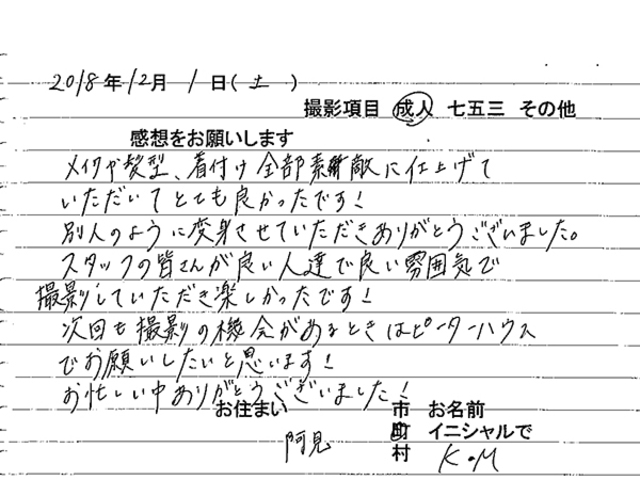 2018年12月1日(土)
撮影項目 成人 七五三 その他
感想をお願いします
メイクや髪型、着付け全部素敵に仕上げて
いただいてとても良かったです!
別人のように変身させていただきありがとうございました。
スタッフの皆さんが良い人達で良い雰囲気で
撮影していただき楽しかったです!
次回も撮影の機会があるときはピーターハウス
でお願いしたいと思います!
お忙しい中ありがとうございました!
お住まい 市 お名前
阿見 町 イニシャルで
村 K・M